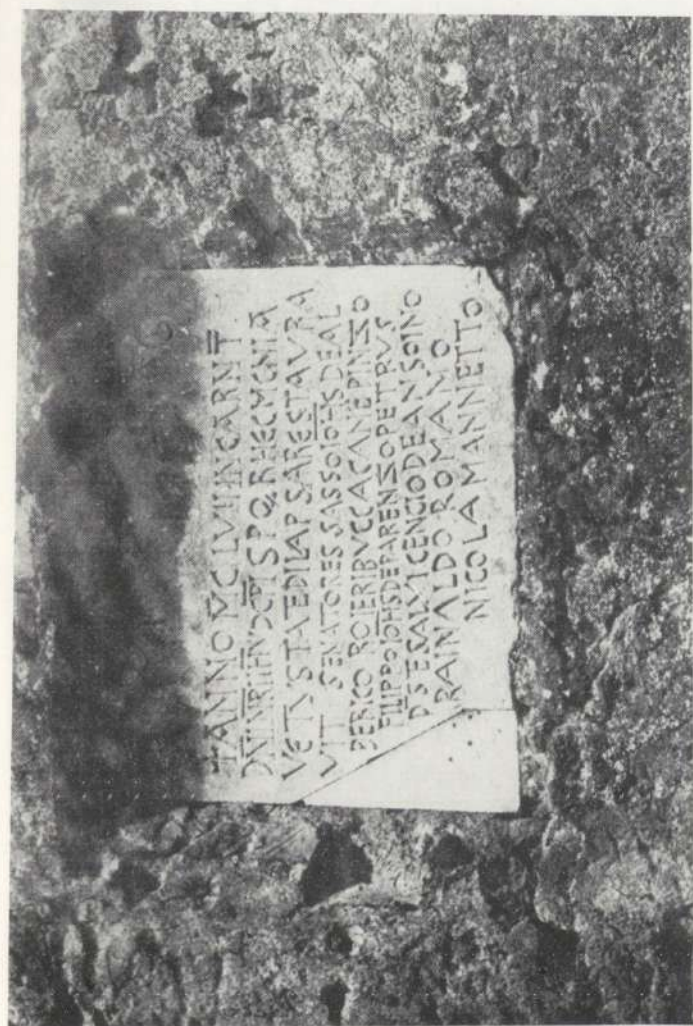 + ANNO MCLVII INCARNT
DNI NRI IHV XPI SPQR HEC MENIA
VETVSTATE DILAPSA RESTAVRA
VIT SENATORES SASSO IOHS DE AL
BERICO ROIERI BVCCACANE PINZO
FILIPPO IOHS DE PARENZO PETRVS
DS TE SALVI CENCIO DE ANSOINO
RAINALDO ROMANO
NICOLA MANNETTO